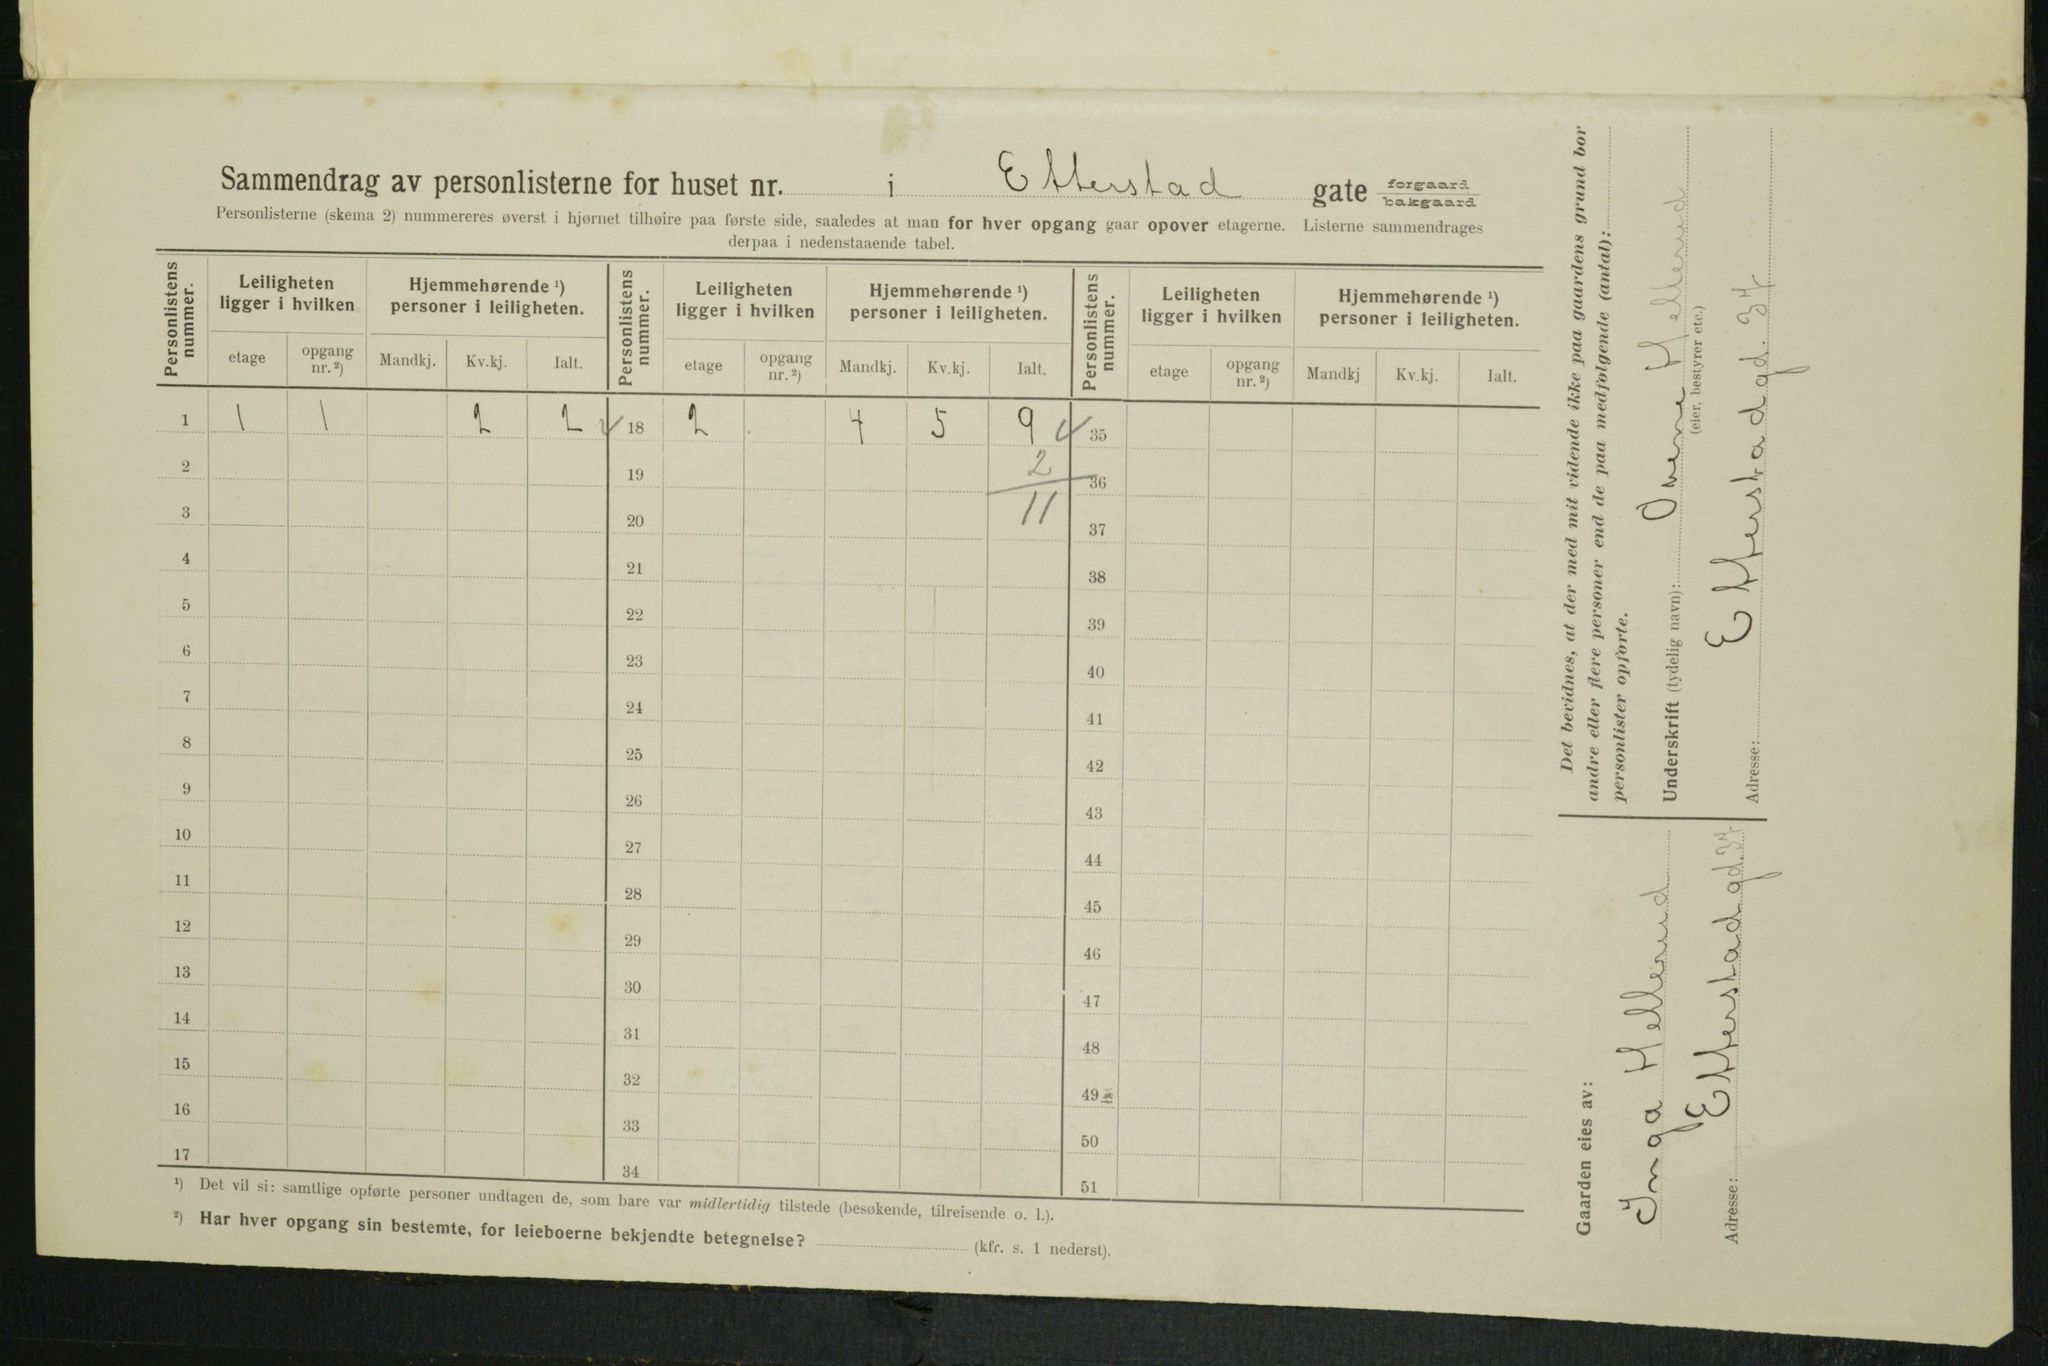 Sammendrag av personlisterne for huset nr. i Etterstad gate forgaard bakgaard
Personlisterne (skema 2) nummereres øverst i hjørnet tilhøire paa første side, saaledes at man for hver opgang gaar opover etagerne. Listerne sammendrages
derpaa i nedenstaaende tabel.
Personlistens nummer. Leiligheten ligger i hvilken Hjemmehørende ¹) personer i leiligheten. Personlistens nummer. Leiligheten ligger i hvilken Hjemmehørende ¹) personer i leiligheten. Personlistens nummer. Leiligheten ligger i hvilken Hjemmehørende ¹) personer i leiligheten.
etage opgang nr. ²) Mandkj. Kv.kj. Ialt. etage opgang nr. ²) Mandkj. Kv.kj. Ialt. etage opgang nr. ²) Mandkj Kv.kj. Ialt.
1 1 1 2 2 18 2 4 5 9 35
2 19 2 36
3 20 11 37
4 21 38
5 22 39
6 23 40
7 24 41
8 25 42
9 26 43
10 27 44
11 28 45
12 29 46
13 30 47
14 31 48
15 32 49
16 33 50
17 34 51
¹) Det vil si: samtlige opførte personer undtagen de, som bare var midlertidig tilstede (besøkende, tilreisende o. l.).
²) Har hver opgang sin bestemte, for leieboerne bekjendte betegnelse? (kfr. s. 1 nederst).
Det bevidnes, at der med mit vidende ikke paa gaardens grund bor
andre eller flere personer end de paa medfølgende (antal):
personlister opførte.
Underskrift (tydelig navn): Hellerud
(eier, bestyrer etc.)
Adresse: Etterstadgd. 37
Gaarden eies av:
Inga Hellerud
Adresse: Etterstadgd. 37